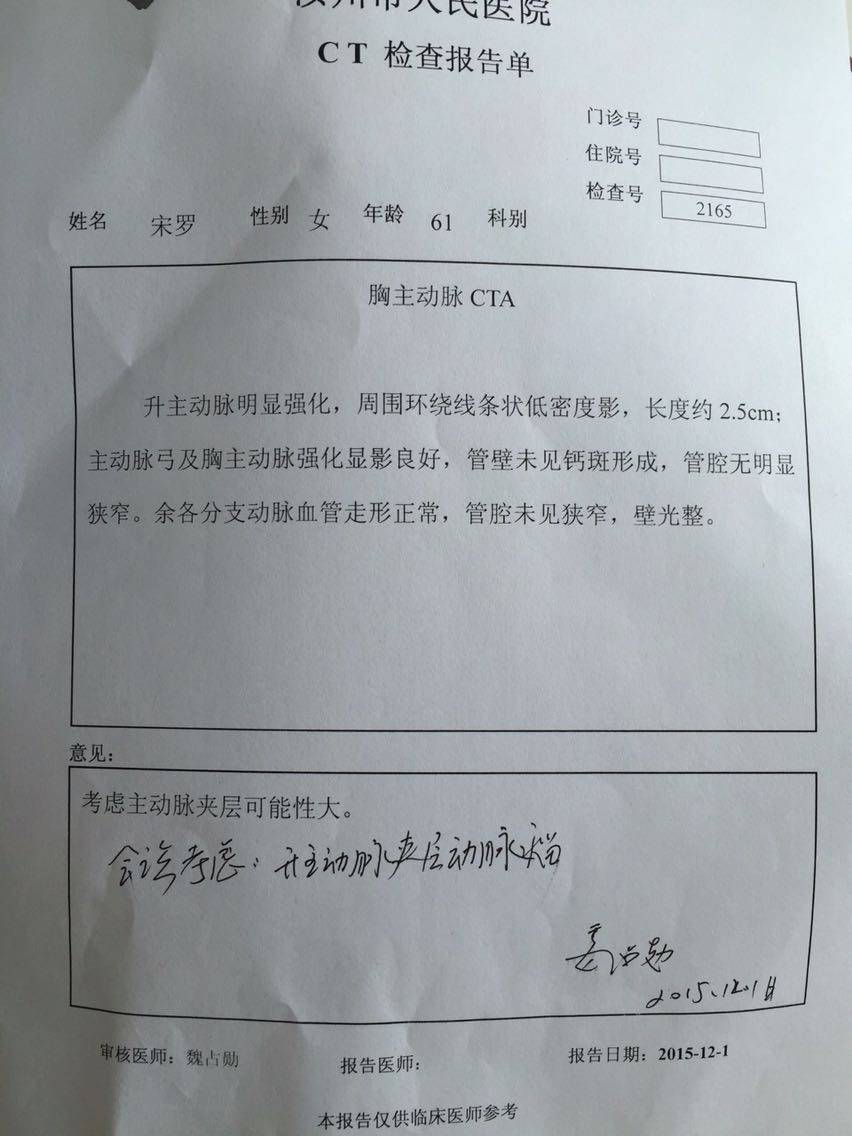 汝州市人民医院
CT 检查报告单
门诊号
住院号
检查号 2165
姓名 宋罗 性别 女 年龄 61 科别
胸主动脉 CTA
升主动脉明显强化，周围环绕线条状低密度影，长度约 2.5cm；
主动脉弓及胸主动脉强化显影良好，管壁未见钙斑形成，管腔无明显
狭窄。余各分支动脉血管走形正常，管腔未见狭窄，壁光整。
意见：
考虑主动脉夹层可能性大。
会诊考虑：升主动脉夹层动脉瘤
2015.12.1日
审核医师：魏占勋 报告医师： 报告日期：2015-12-1
本报告仅供临床医师参考